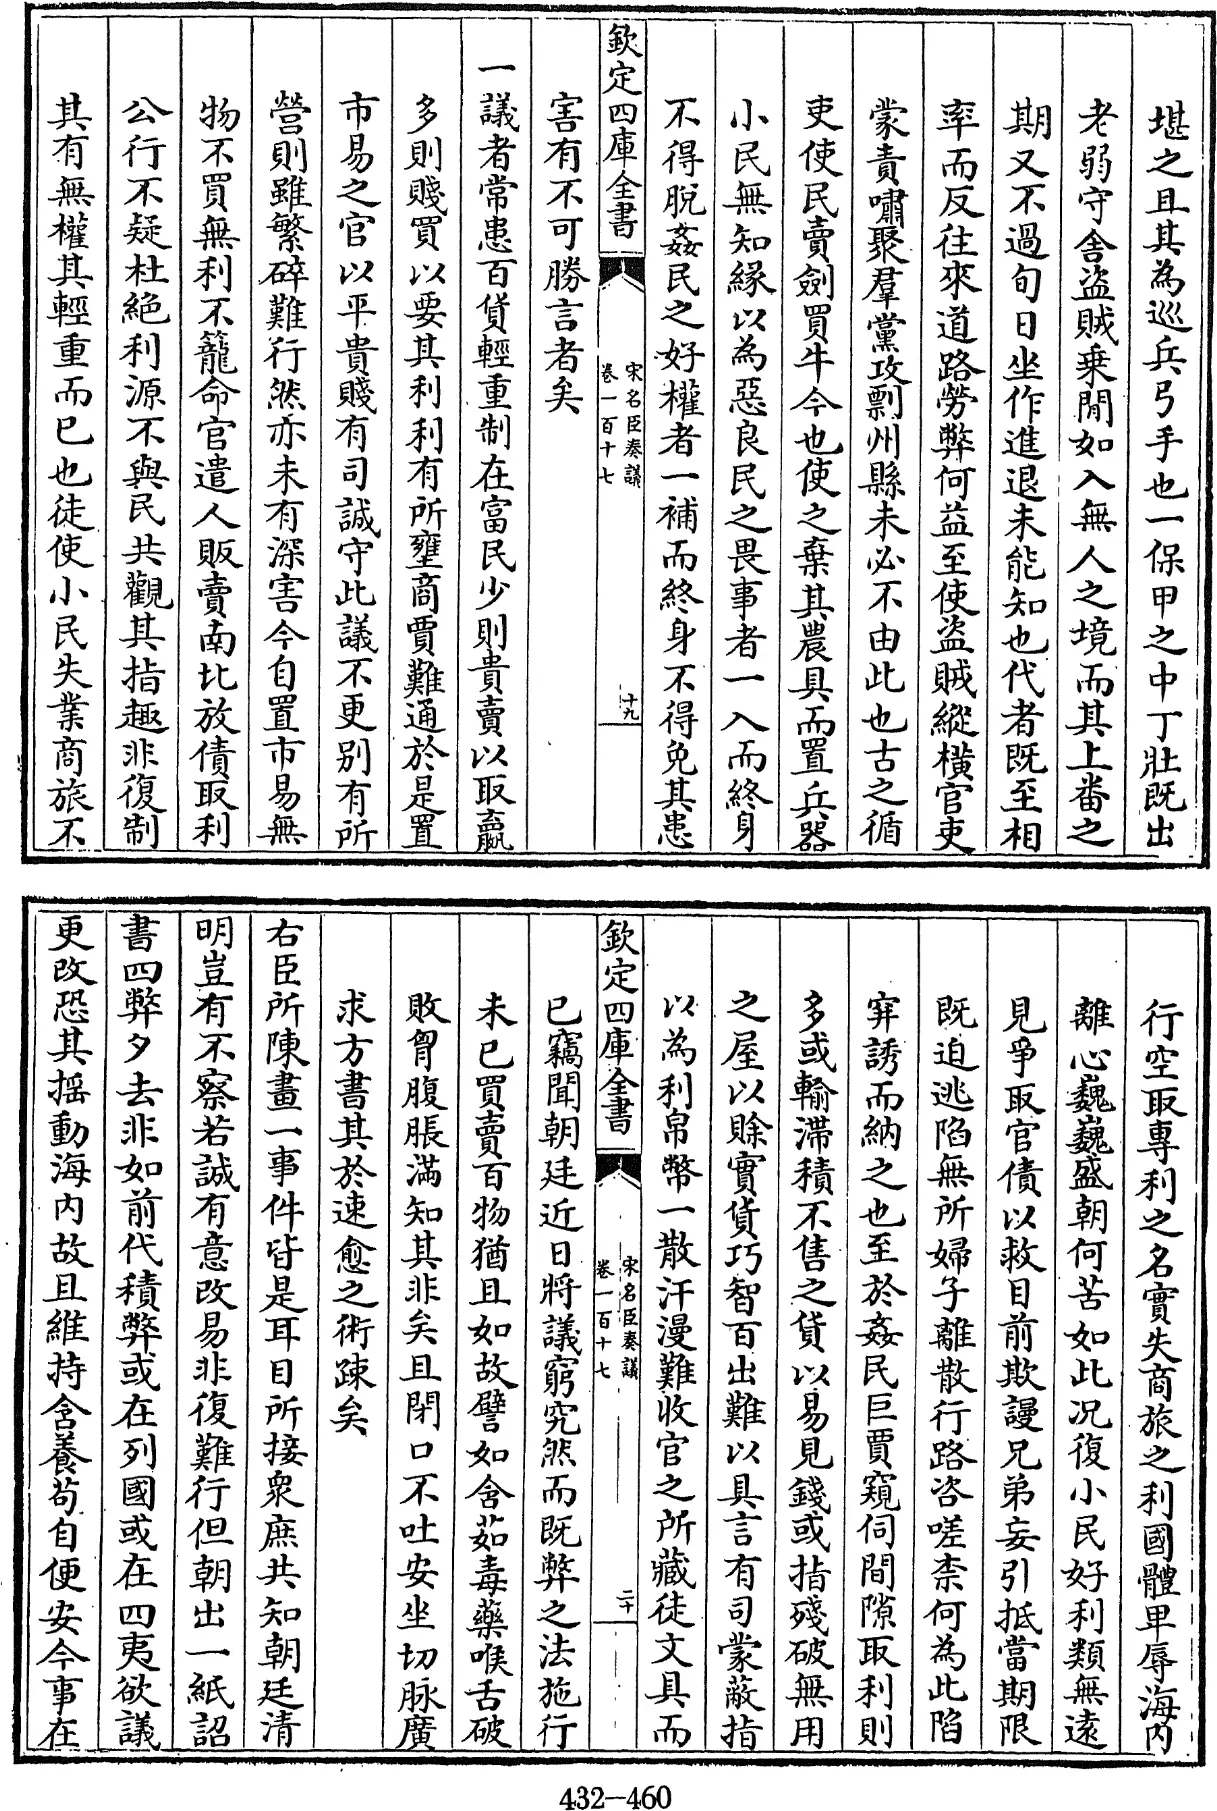 堪之且其為巡兵弓手也一保甲之中丁壯既出
老弱守舍盜賊乗閒如入無人之境而其上番之
期又不過旬日坐作進退未能知也代者既至相
率而反往來道路勞弊何益至使盜賊縱橫官吏
蒙責嘯聚羣黨攻剽州縣未必不由此也古之循
吏使民賣劍買牛今也使之棄其農具而置兵器
小民無知緣以為惡良民之畏事者一入而終身
不得脫姦民之好權者一補而終身不得免其患
欽定四庫全書
宋名臣奏議
卷一百十七
十九
害有不可勝言者矣
一議者常患百貨輕重制在富民少則貴賣以取贏
多則賤買以要其利利有所壅商賈難通於是置
市易之官以平貴賤有司誠守此議不更別有所
營則雖繁碎難行然亦未有深害今自置市易無
物不買無利不籠命官遣人販賣南北放債取利
公行不疑杜絶利源不與民共觀其指趣非復制
其有無權其輕重而已也徒使小民失業商旅不
行空取專利之名實失商旅之利國體卑辱海内
離心巍巍盛朝何苦如此况復小民好利類無遠
見爭取官債以救目前欺謾兄弟妄引抵當期限
既迫逃陷無所婦子離散行路咨嗟柰何為此陷
穽誘而納之也至於姦民巨賈窺伺間隙取利則
多或輸滯積不售之貨以易見錢或指殘破無用
之屋以賒實貨巧智百出難以具言有司蒙蔽指
以為利帛幣一散汗漫難收官之所藏徒文具而
欽定四庫全書
宋名臣奏議
卷一百十七
二十
已竊聞朝廷近日將議窮究然而既弊之法施行
未已買賣百物猶且如故譬如含茹毒藥喉舌破
敗胷腹脹滿知其非矣且閉口不吐安坐切脉廣
求方書其於速愈之術疎矣
右臣所陳畫一事件皆是耳目所接衆庶共知朝廷清
明豈有不察若誠有意改易非復難行但朝出一紙詔
書四弊夕去非如前代積弊或在列國或在四夷欲議
更改恐其揺動海内故且維持含養苟自便安今事在
432-460